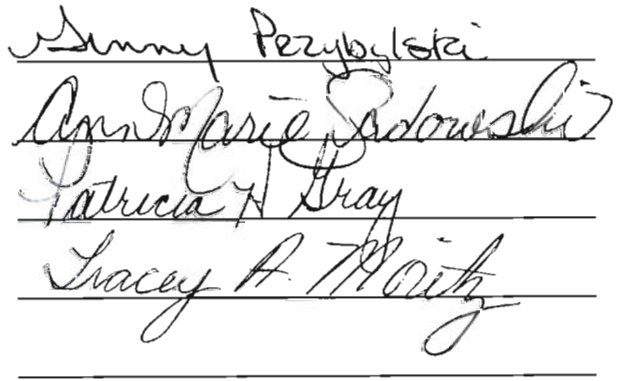 Ginny Przybylski
Ann Marie Sadowski
Patricia H Gray
Tracey A. Moritz